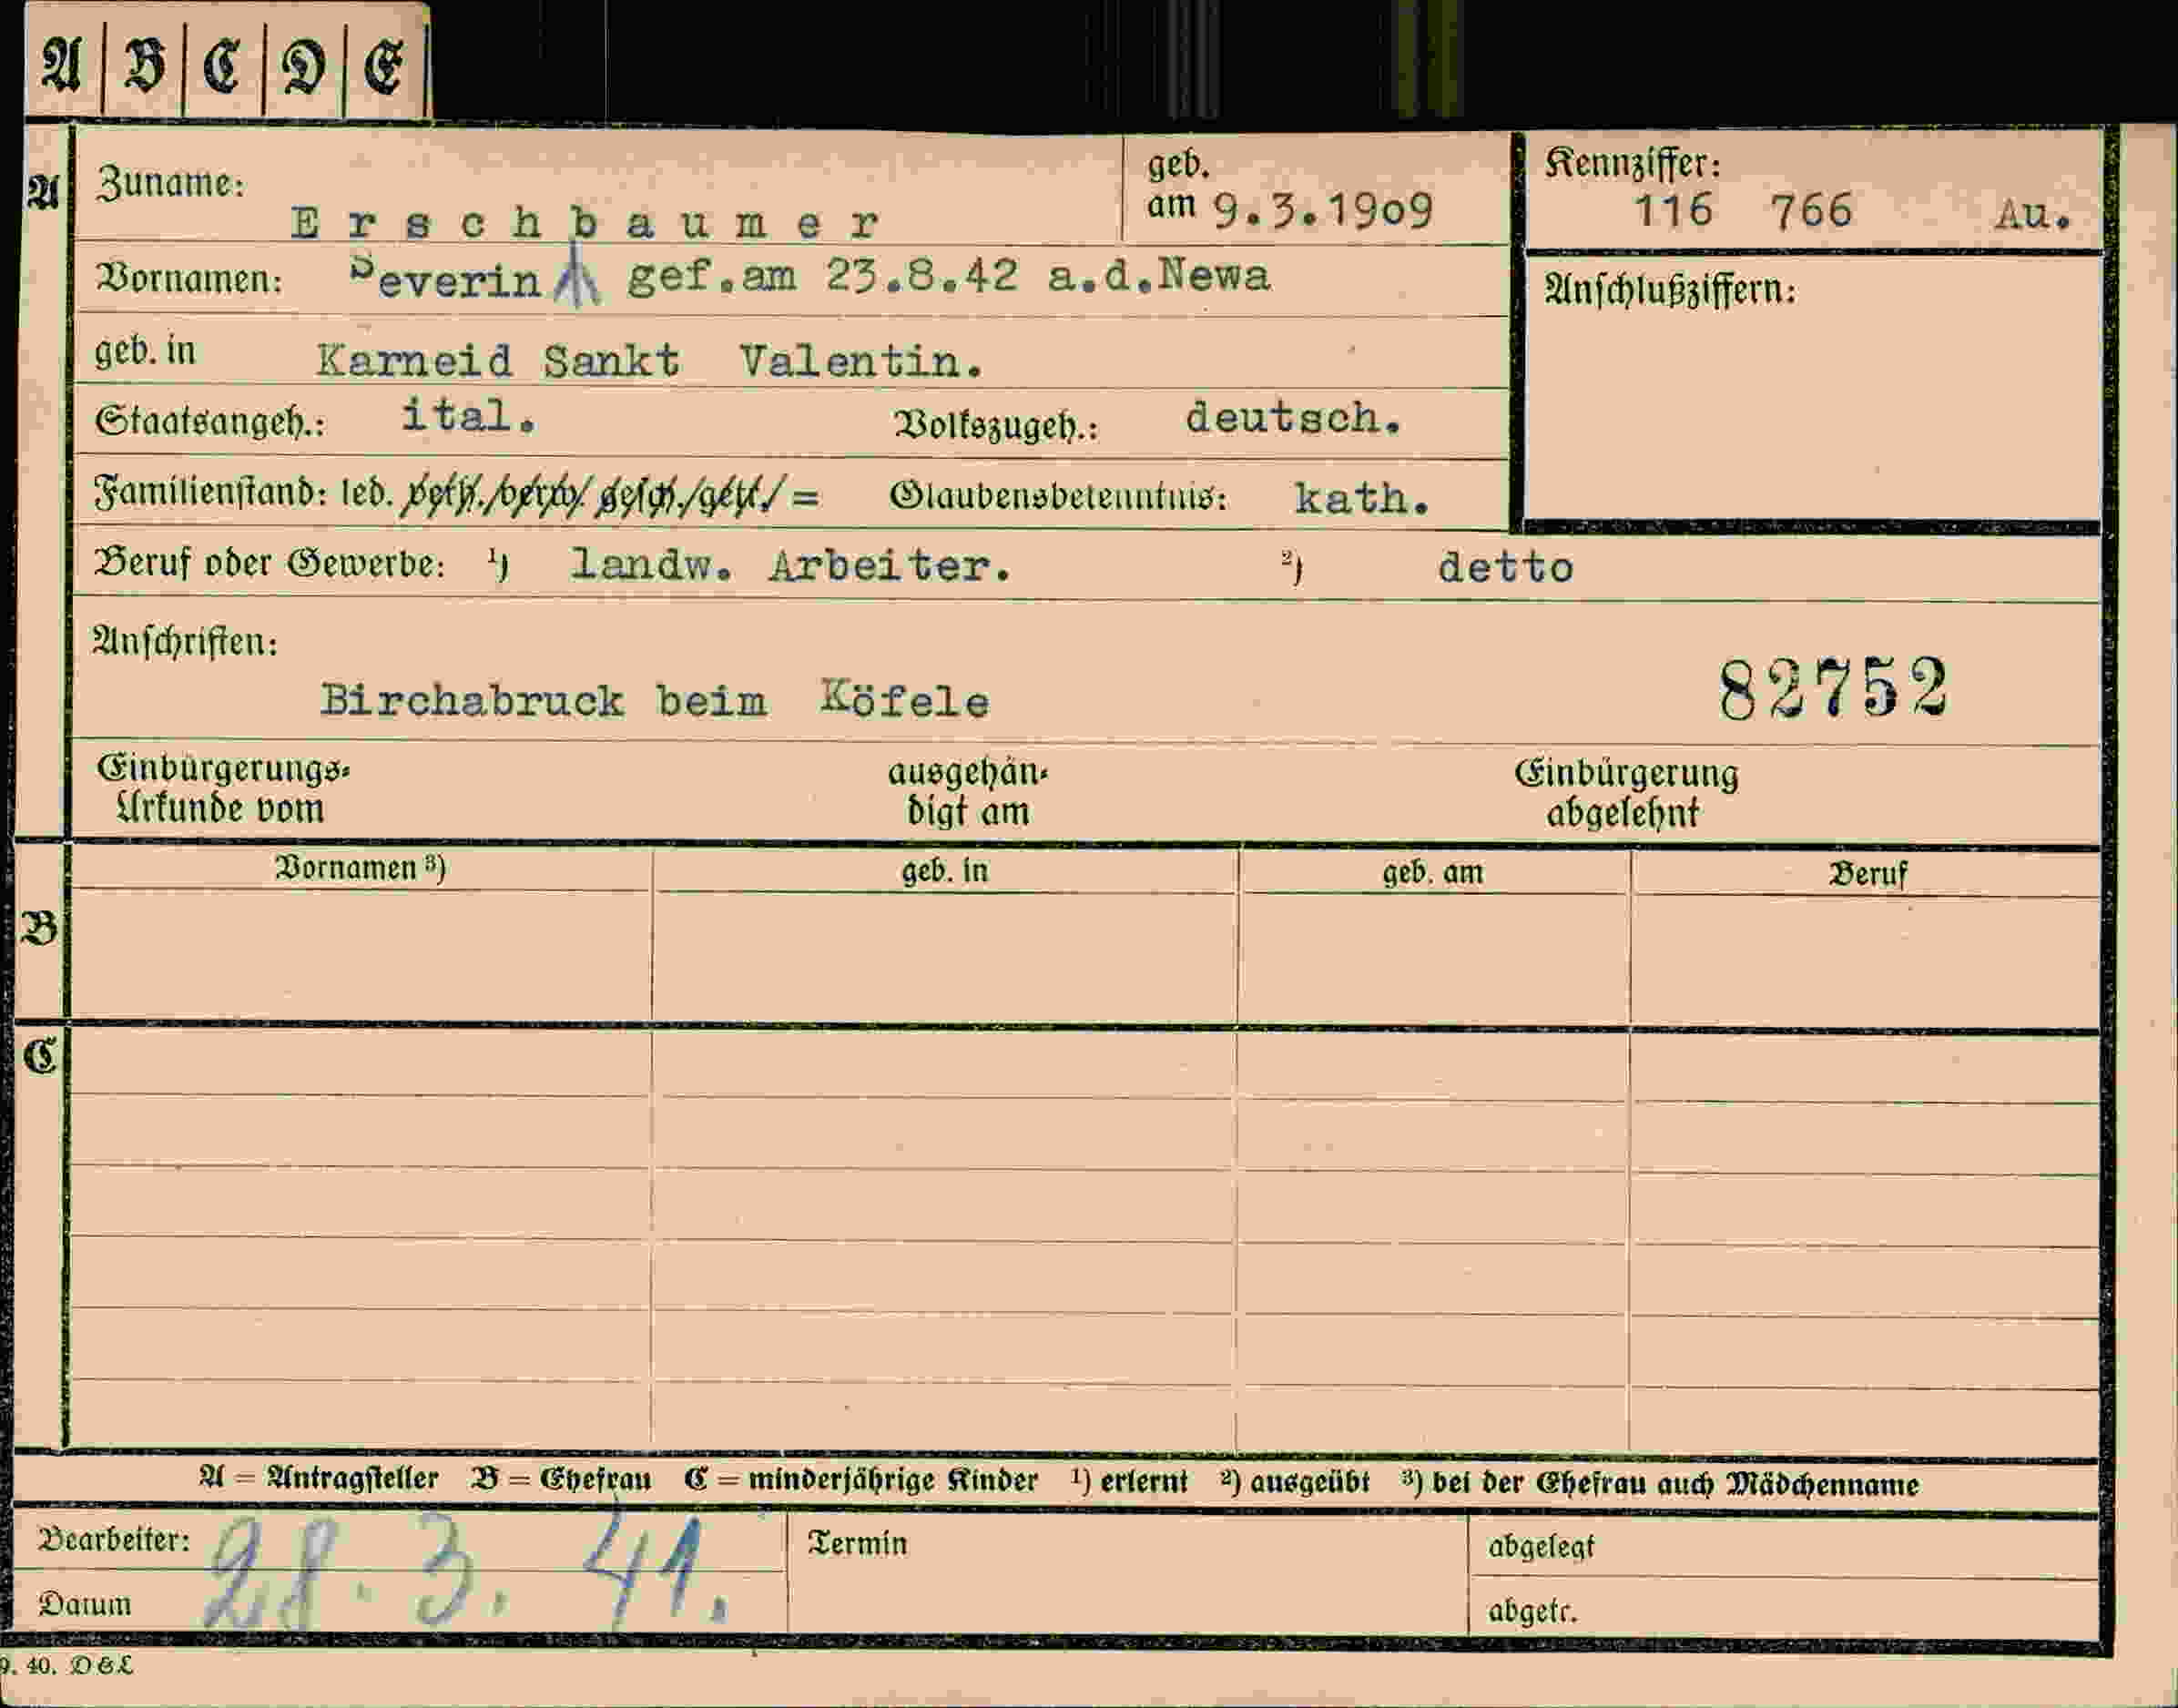 A B C D E
A
Zuname: Erschbaumer
geb. am 9.3.1909
Kennziffer: 116 766 Au.
Vornamen: Severin gef.am 23.8.42 a.d.Newa
Anschlußziffern:
geb. in Karneid Sankt Valentin.
Staatsangeh.: ital. Volkszugeh.: deutsch.
Familienstand: led. verh./verw./gesch./getr./= Glaubensbekenntnis: kath.
Beruf oder Gewerbe: 1) landw. Arbeiter. 2) detto
Anschriften:
Birchabruck beim Köfele 82752
Einbürgerungs-Urkunde vom ausgehändigt am Einbürgerung abgelehnt
Vornamen 3) geb. in geb. am Beruf
B
C
A = Antragsteller B = Ehefrau C = minderjährige Kinder 1) erlernt 2) ausgeübt 3) bei der Ehefrau auch Mädchenname
Bearbeiter: Termin abgelegt
28. 3. 41.
Datum abgetr.
9. 40. D & L